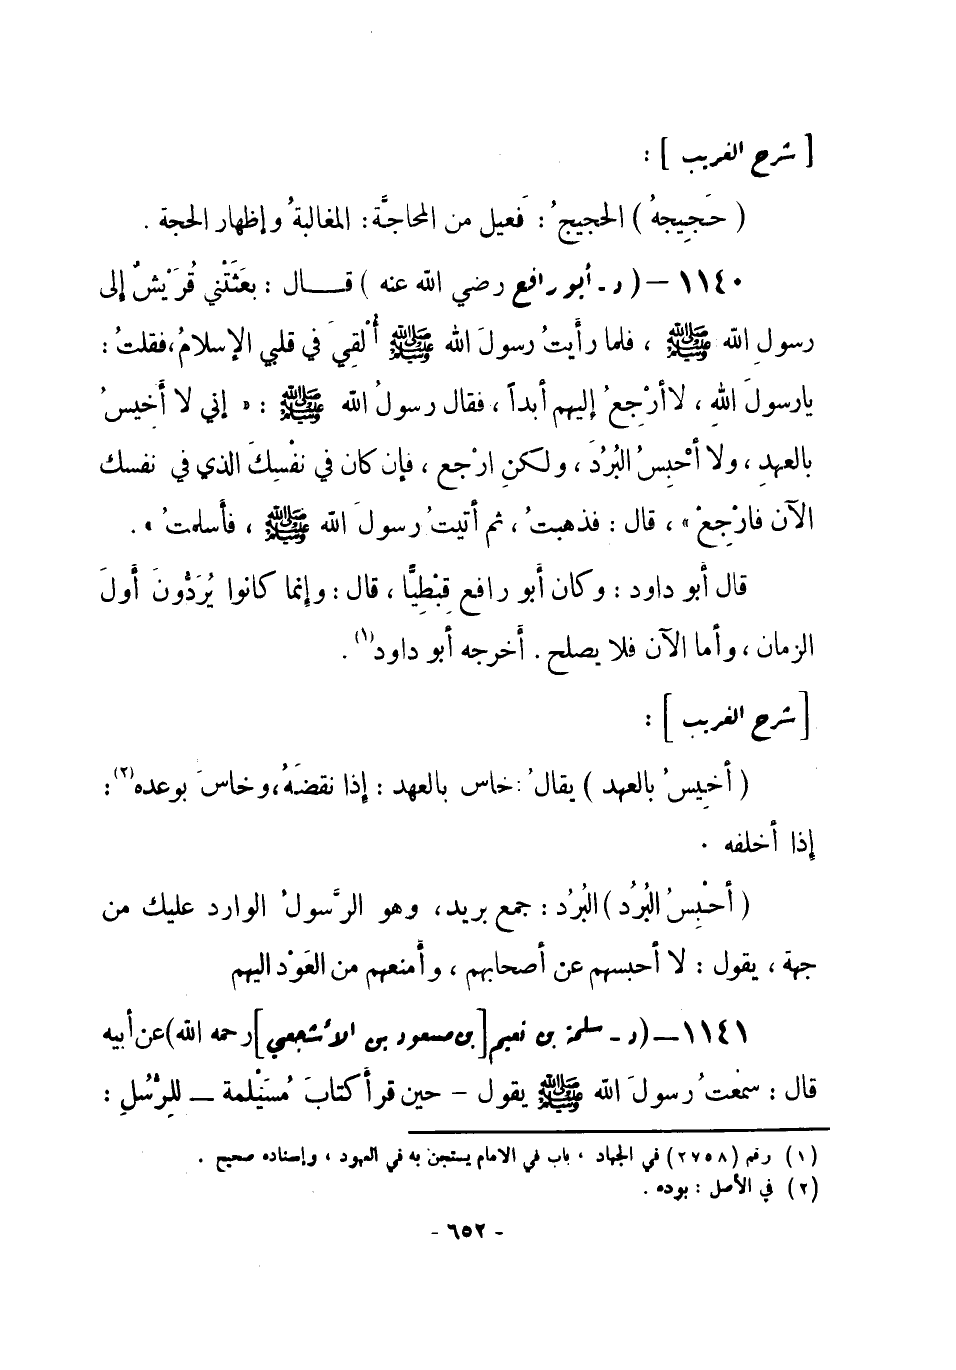 [ شرح الغريب ] :
( حَجِيجهُ ) الحجيجُ : فَعيل من المحاجَّة : المغالبةُ وإظهار الحجة .
١١٤٠ – ( د - أبو رافع رضي الله عنه ) قال : بعَثَتْني قُرَيْشٌ إلى
رسولِ الله ﷺ ، فلما رأيتُ رسولَ الله ﷺ أُلْقِيَ في قلبي الإسلامُ ، فقلتُ :
يارسولَ اللهِ ، لا أرْجِعُ إليهم أبداً ، فقال رسولُ الله ﷺ : « إني لا أَخِيسُ
بالعهدِ ، ولا أحْبِسُ البُرُدَ ، ولكنِ ارْجع ، فإن كان في نفْسِكَ الذي في نفسك
الآن فارْجِعْ » ، قال : فذهبتُ ، ثم أتيتُ رسولَ الله ﷺ ، فأسلمتُ » .
قال أبو داود : وكان أبو رافع قِبْطِيًّا ، قال : وإنما كانوا يُرَدُّونَ أولَ
الزمان ، وأما الآن فلا يصلح . أخرجه أبو داود(١) .
[ شرح الغريب ] :
( أخِيسُ بالعهد ) يقالُ : خاس بالعهد : إذا نقضَهُ ، وخاسَ بوعده(٢) :
إذا أخلفه .
( أحْبِسُ البُرُد ) البُرُد : جمع بريد ، وهو الرَّسولُ الوارد عليك من
جهة ، يقول : لا أحبسهم عن أصحابهم ، وأمنعهم من العَوْد اليهم
١١٤١ – ( د - سلمة بن نعيم [ بن مسعود بن الأشجعي ] رحمه الله ) عن أبيه
قال : سمْعتُ رسولَ الله ﷺ يقول – حين قرأ كتابَ مُسَيْلمة – للرُّسُلِ :
(١) رقم (٢٧٥٨) في الجهاد ، باب في الامام يستجن به في العهود ، وإسناده صحيح .
(٢) في الأصل : بوده .
- ٦٥٢ -